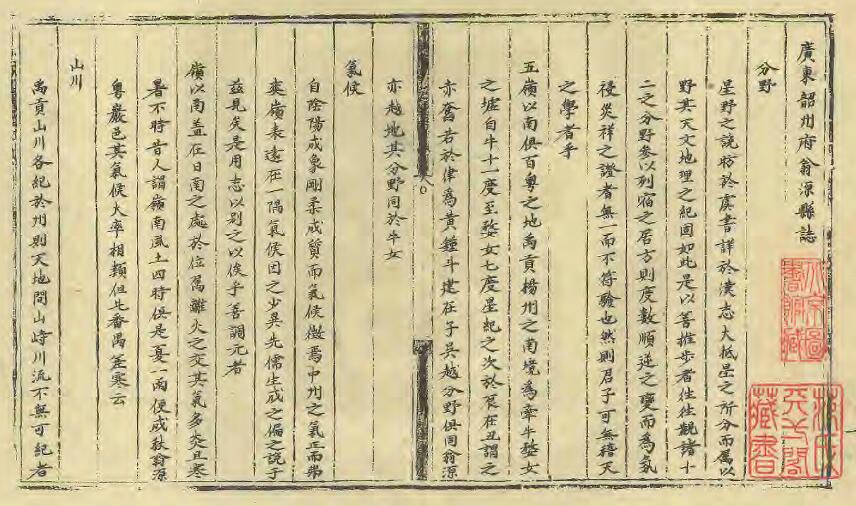 廣東韶州府翁源縣誌
分野
星野之說昉於虞書詳於漢志大抵星之所分而属以
野其天文地理之紀固如此是以善推步者往往觀諸十
二之分野參以列宿之居方則度數順逆之變而為氛
祲災祥之證者無一而不符驗也然則君子可無藉天
之學者乎
五嶺以南俱百粤之地禹貢楊州之南境為牽牛婺女
之墟自牛十一度至婺女七度星紀之次於辰在丑謂之
亦奮若於律為黄鐘斗建在子吳越分野俱同翁源
亦越地其分野同於牛女
氣候
自陰陽成象剛柔成質而氣候徵焉中州之氣正而弗
爽嶺表遠在一隅氣候因之少異先儒生成之偏之說于
茲見矣是用志以别之以俟乎善調元者
嶺以南盖在日南之處於位為離火之交其氣多炎且寒
暑不時昔人謂嶺南風土四時俱是夏一雨便成秋翁源
粤巖邑其氣候大率相類但比番禺差寒云
山川
禹貢山川各紀於州則天地間山峙川流不無可紀者
卷〇